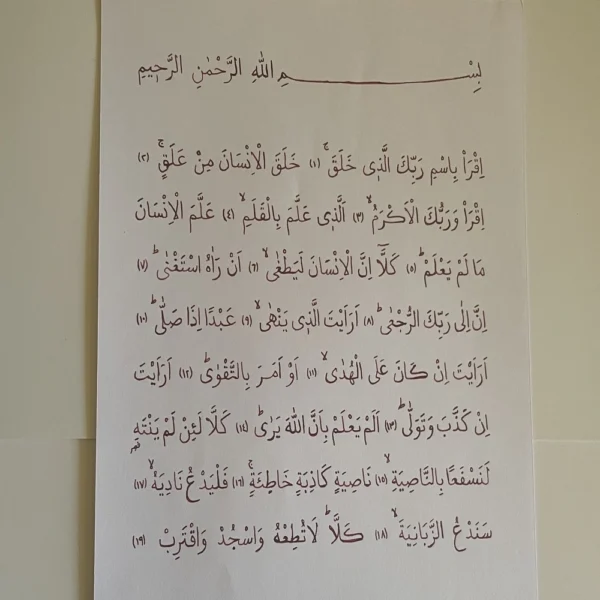 بِسْــــــــــــــــمِ اللّٰهِ الرَّحْمٰنِ الرَّح۪يمِ
اِقْرَاْ بِاسْمِ رَبِّكَ الَّذ۪ى خَلَقَۚ ﴿١﴾ خَلَقَ الْاِنْسَانَ مِنْ عَلَقٍۚ ﴿٢﴾
اِقْرَاْ وَرَبُّكَ الْاَكْرَمُۙ ﴿٣﴾ اَلَّذ۪ى عَلَّمَ بِالْقَلَمِۙ ﴿٤﴾ عَلَّمَ الْاِنْسَانَ
مَا لَمْ يَعْلَمْۜ ﴿٥﴾ كَلَّٓا اِنَّ الْاِنْسَانَ لَيَطْغٰىۙ ﴿٦﴾ اَنْ رَاٰهُ اسْتَغْنٰىۜ ﴿٧﴾
اِنَّ اِلٰى رَبِّكَ الرُّجْعٰىۜ ﴿٨﴾ اَرَاَيْتَ الَّذ۪ى يَنْهٰىۙ ﴿٩﴾ عَبْدًا اِذَا صَلّٰىۜ ﴿١٠﴾
اَرَاَيْتَ اِنْ كَانَ عَلَى الْهُدٰىۙ ﴿١١﴾ اَوْ اَمَرَ بِالتَّقْوٰىۜ ﴿١٢﴾ اَرَاَيْتَ
اِنْ كَذَّبَ وَتَوَلّٰىۜ ﴿١٣﴾ اَلَمْ يَعْلَمْ بِاَنَّ اللّٰهَ يَرٰىۜ ﴿١٤﴾ كَلَّا لَئِنْ لَمْ يَنْتَهِ
لَنَسْفَعًا بِالنَّاصِيَةِۙ ﴿١٥﴾ نَاصِيَةٍ كَاذِبَةٍ خَاطِئَةٍۚ ﴿١٦﴾ فَلْيَدْعُ نَادِيَهُۙ ﴿١٧﴾
سَنَدْعُ الزَّبَانِيَةَۙ ﴿١٨﴾ كَلَّاۜ لَاتُطِعْهُ وَاسْجُدْ وَاقْتَرِبْ ﴿١٩﴾